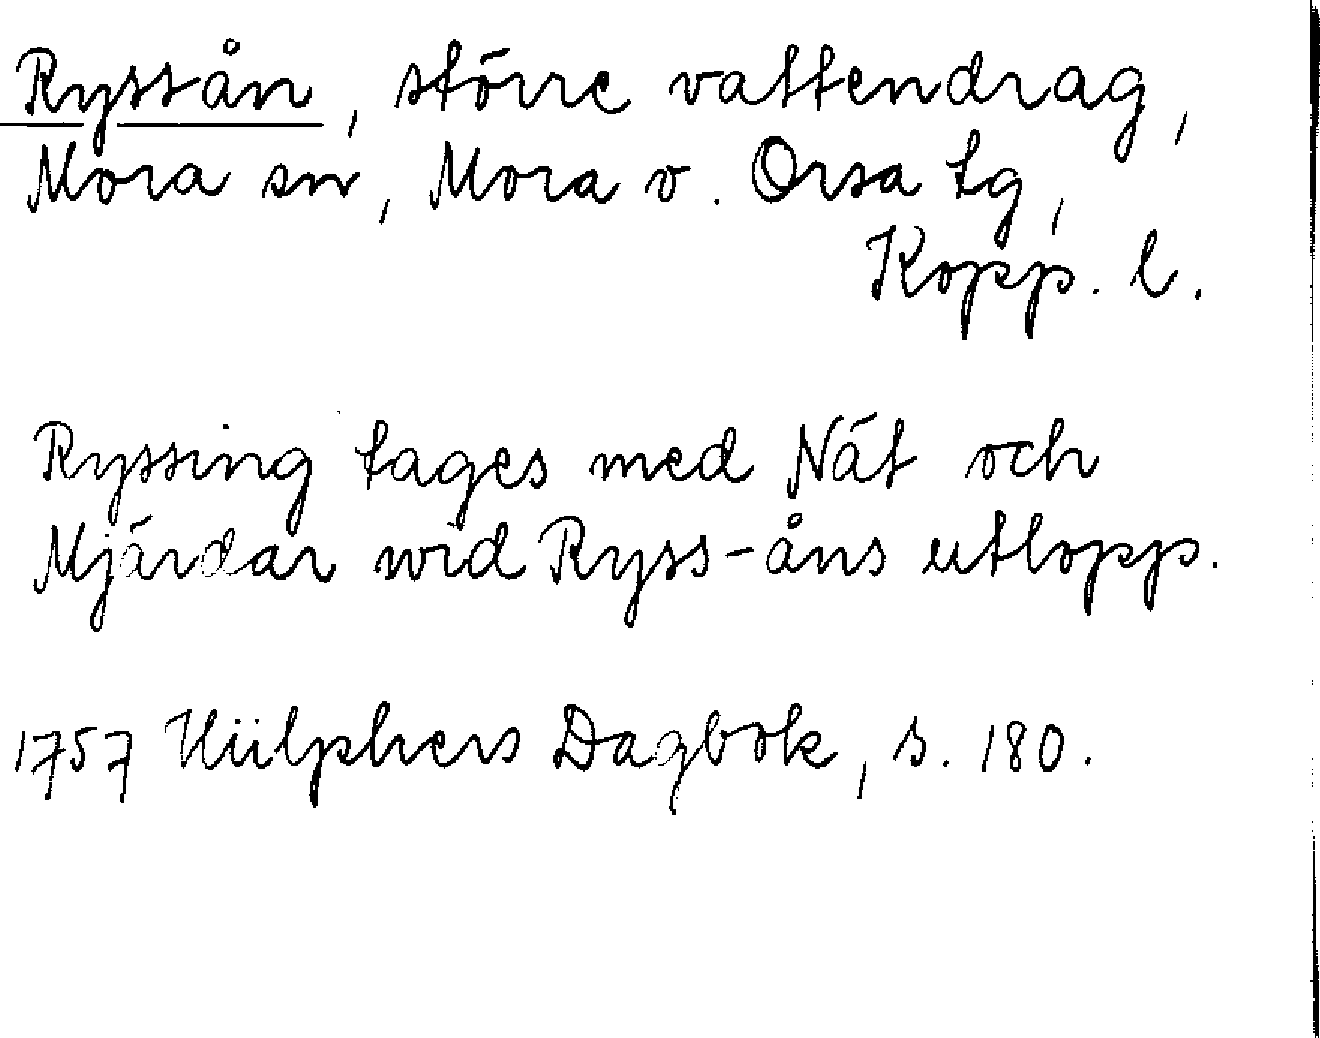 Ryssån, större vattendrag,
Mora sn, Mora o. Orsa tg,
Kopp. l.
Ryssing tages med Nät och
Mjärdar wid Ryss-åns utlopp.
1757 Hülphers Dagbok, s. 180.